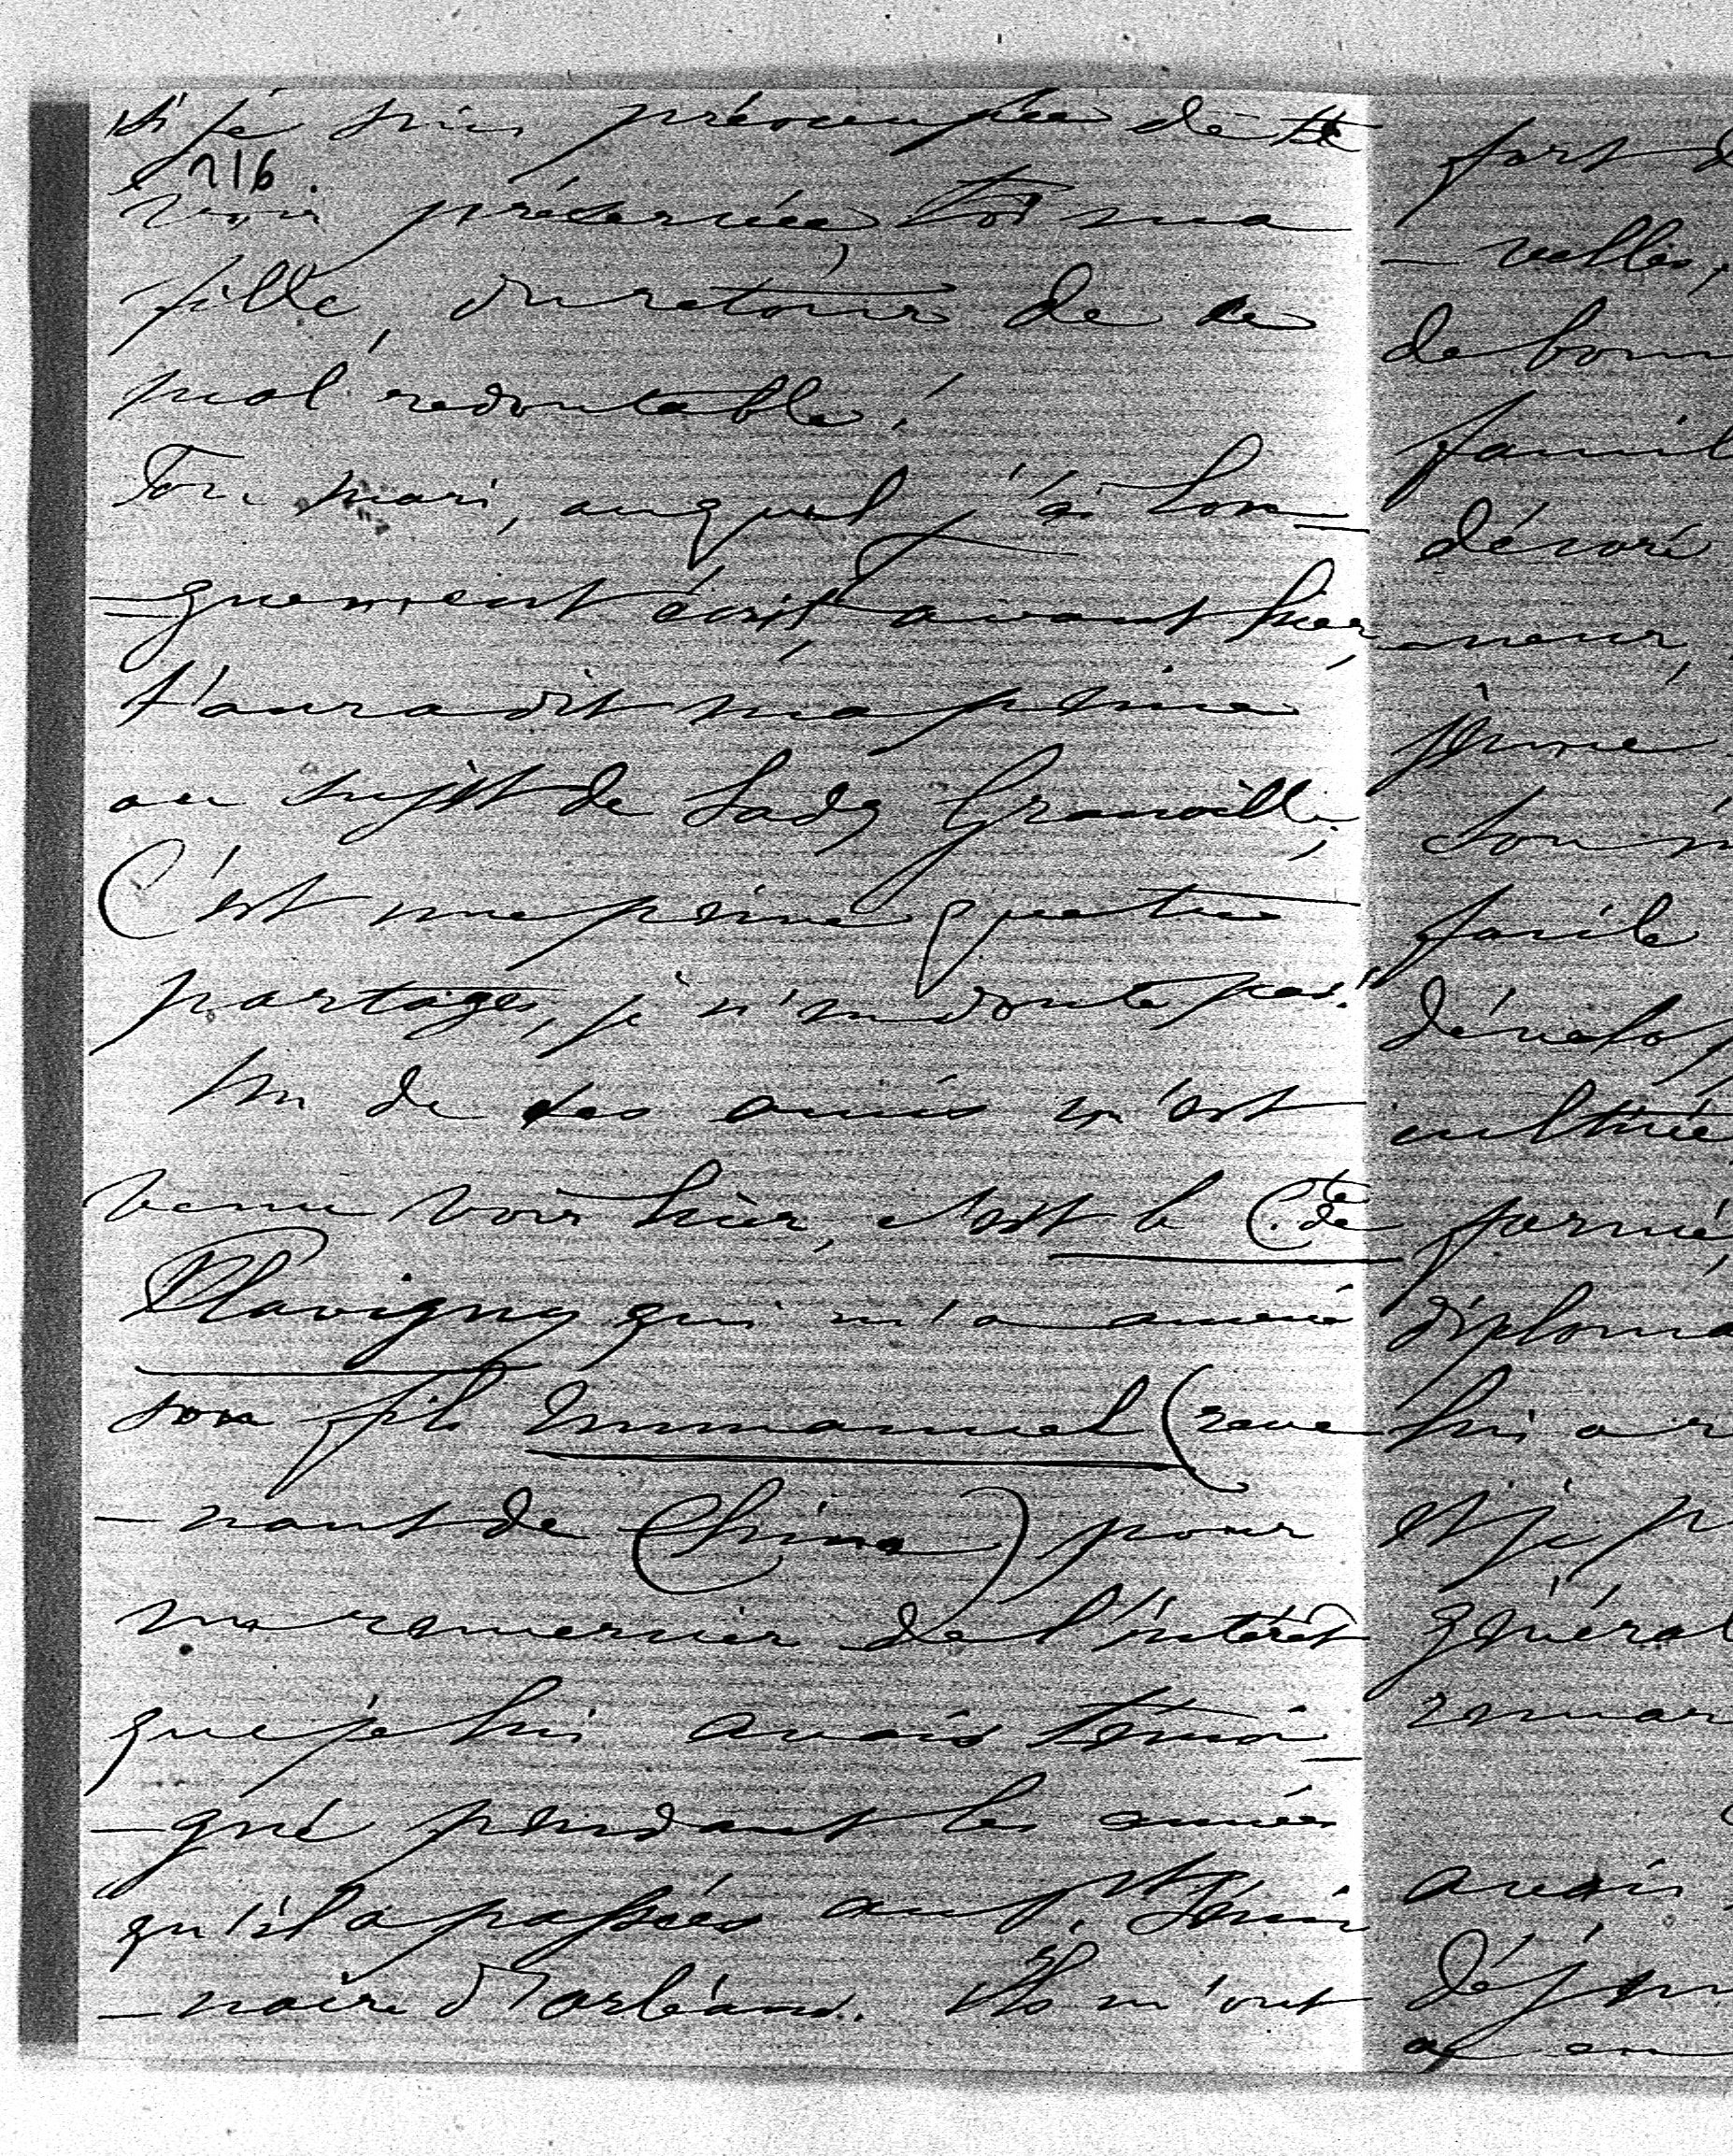 si je suis préoccupée de te
216.
voir préservée, toi ma
fille, du retour de ce
mal redoutable!
Ton mari, auquel j'ai lon-
-guement écrit, avant hier,
t'aura dit ma peine
au sujet de Lady Granville;
C'est une peine que tu
partages, je n'en doute pas!
Un de tes amis m'est
venu voir hier, c'est le Cte de
Flavigny qui m'a amené
son fils Emmanuel (reve
-nant de Chine) pour
me remercier de l'intérêt
que je lui avais témoi-
-gné pendant les années
qu'il a passées au pt Sémi
-naire d'Orléans. Ils m'ont
fort d
-velles,
de bonn
famil
dévoré
-neur,
jeune
Son
facile
dévelop
cultivé
formé,
diploma
lui a r
et je p
général
remar
avais
déj